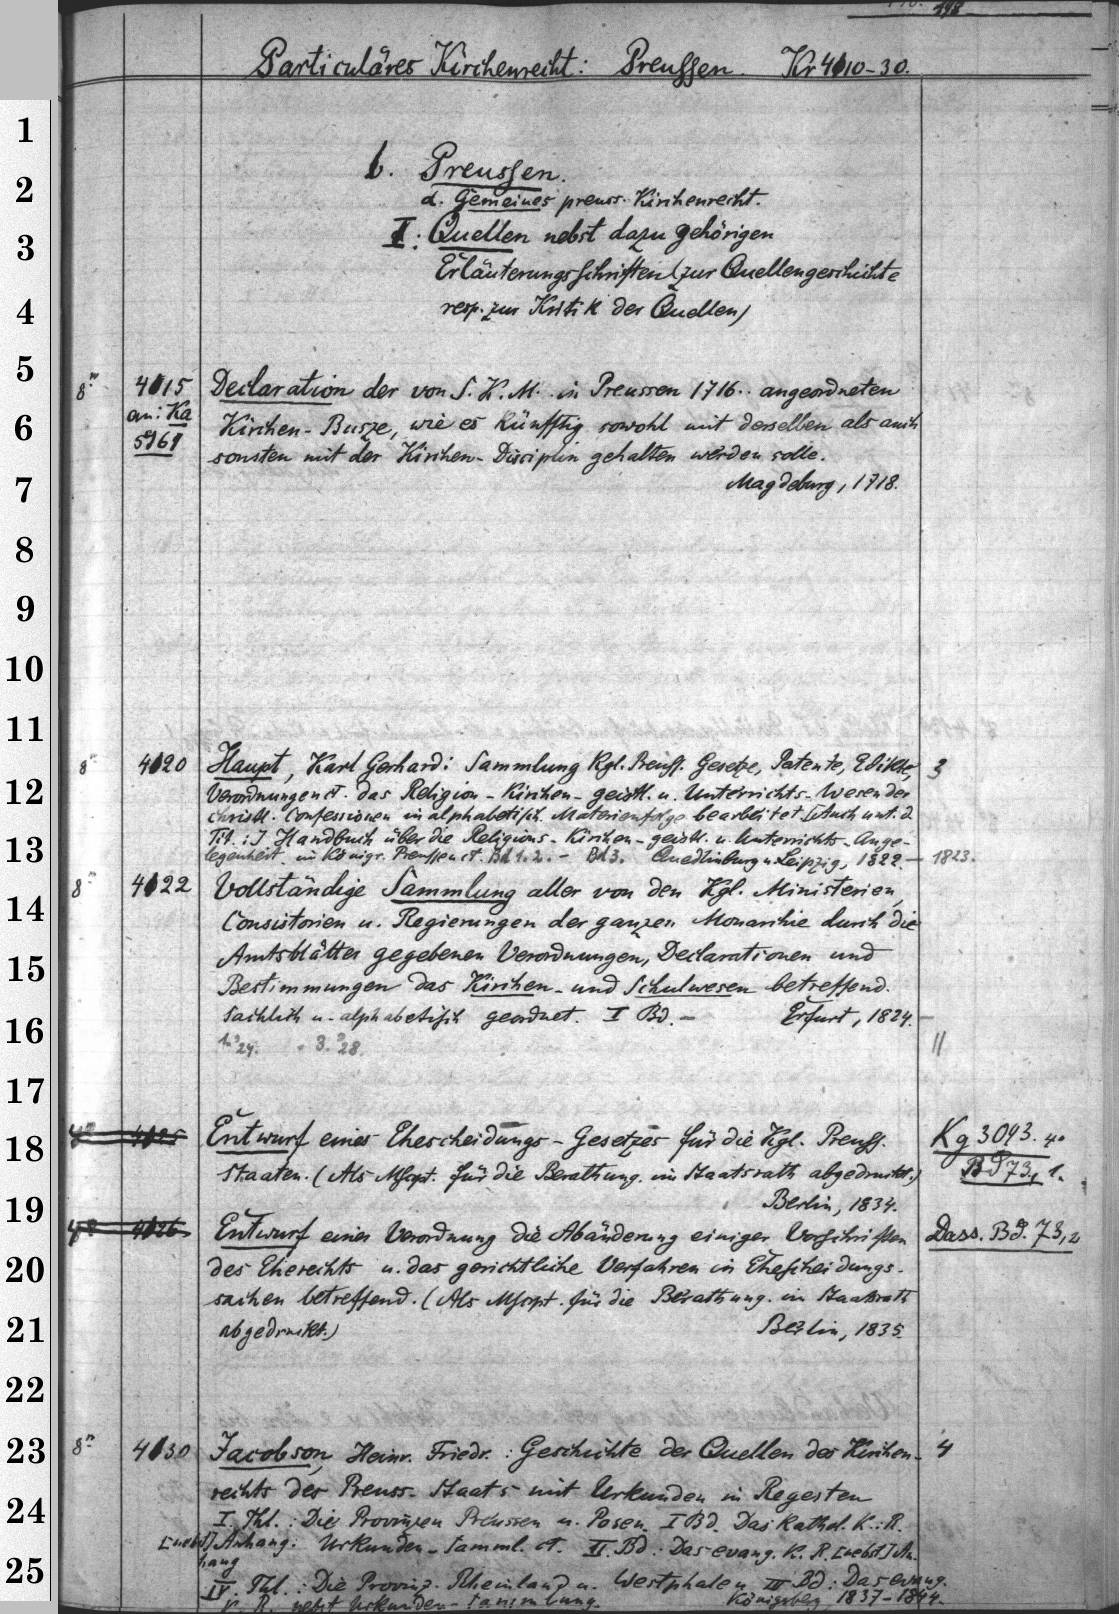 198
Particuläres Kirchenrecht: Preussen. Kr 4110-30.
b. Preussen.
d. Gemeines preuss. Kirchenrecht.
I: Quellen nebst dazu gehörigen
Erläuterungsschriften (zur Quellengeschichte
resp. zur Kritik der Quellen)
8° 4115 Declaration der von S. K. M. in Preussen 1716.. angeordneten
an: Ka Kirchen-Busze, wie es künfftig sowohl mit derselben als auch
5961 sonsten mit der Kirchen-Disciplin gehalten werden solle.
Magdeburg, 1718.
8° 4120 Haupt, Karl Gerhard: Sammlung Kgl. Preuss. Gesetze, Patente, Edikte, 3
Verordnungen ct. das Religion-Kirchen-geistl. u. Unterrichts-Wesen der
christl. Confessionen in alphabetisch. Materienfolge bearbeitet [Auch unt. d.
Tit.:] Handbuch über die Religions-Kirchen-geistl. u. Unterrichts-Ange-
legenheit. im Königr. Preussen ct. Bd 1. 2. – Bd 3. Quedlinburg u Leipzig, 1822.– 1823.
8° 4122 Vollständige Sammlung aller von den Kgl. Ministerien,
Consistorien u. Regierungen der ganzen Monarchie durch die
Amtsblätter gegebenen Verordnungen, Declarationen und
Bestimmungen das Kirchen- und Schulwesen betreffend.
Sachlich u. alphabetisch geordnet. I Bd. – Erfurt, 1824.–
1. 24. 3. 28. 11
4° 4125 Entwurf eines Ehescheidungs-Gesetzes für die Kgl. Preuss. Kg 3093. 4°
Staaten. (Als Mscpt. für die Berathung im Staatsrath abgedruckt.) Bd 73, 1.
Berlin, 1834.
4° 4126 Entwurf einer Verordnung die Abänderung einiger Vorschriften Dass. Bd. 73, 2
des Eherechts u. das gerichtliche Verfahren in Ehescheidungs-
sachen betreffend. (Als Mscpt. für die Berathung im Staatsrath
abgedruckt.) Berlin, 1835.
8° 4130 Jacobson, Heinr. Friedr.: Geschichte der Quellen des Kirchen- 4
rechts des Preuss. Staats mit Urkunden u. Regesten
I Thl.: Die Provinzen Preussen u. Posen. I Bd. Das kathol. K.:R.
[nebst] Anhang: Urkunden-Samml. ct. II. Bd: Das evang. K. R. [nebst] An-
hang
IV. Thl.: Die Provinz. Rheinland u. Westphalen III Bd: Das evang.
K. R. nebst Urkunden-Sammlung. Königsberg, 1837-1844.
1
2
3
4
5
6
7
8
9
10
11
12
13
14
15
16
17
18
19
20
21
22
23
24
25